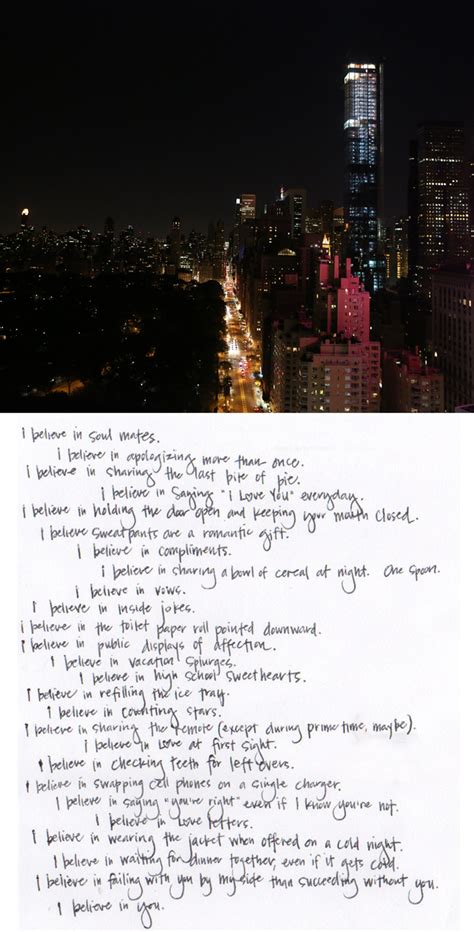 I believe in soul mates.
I believe in apologizing more than once.
I believe in sharing the last bite of pie.
I believe in saying "I Love You" everyday.
I believe in holding the door open and keeping your mouth closed.
I believe sweatpants are a romantic gift.
I believe in compliments.
I believe in sharing a bowl of cereal at night. One spoon.
I believe in vows.
I believe in inside jokes.
I believe in the toilet paper roll pointed downward.
I believe in public displays of affection.
I believe in vacation splurges.
I believe in high school sweethearts.
I believe in refilling the ice tray.
I believe in counting stars.
I believe in sharing the remote (except during prime time, maybe).
I believe in love at first sight.
I believe in checking teeth for leftovers.
I believe in swapping cell phones on a single charger.
I believe in saying "you're right" even if I know you're not.
I believe in love letters.
I believe in wearing the jacket when offered on a cold night.
I believe in waiting for dinner together, even if it gets cold.
I believe in failing with you by my side than succeeding without you.
I believe in you.